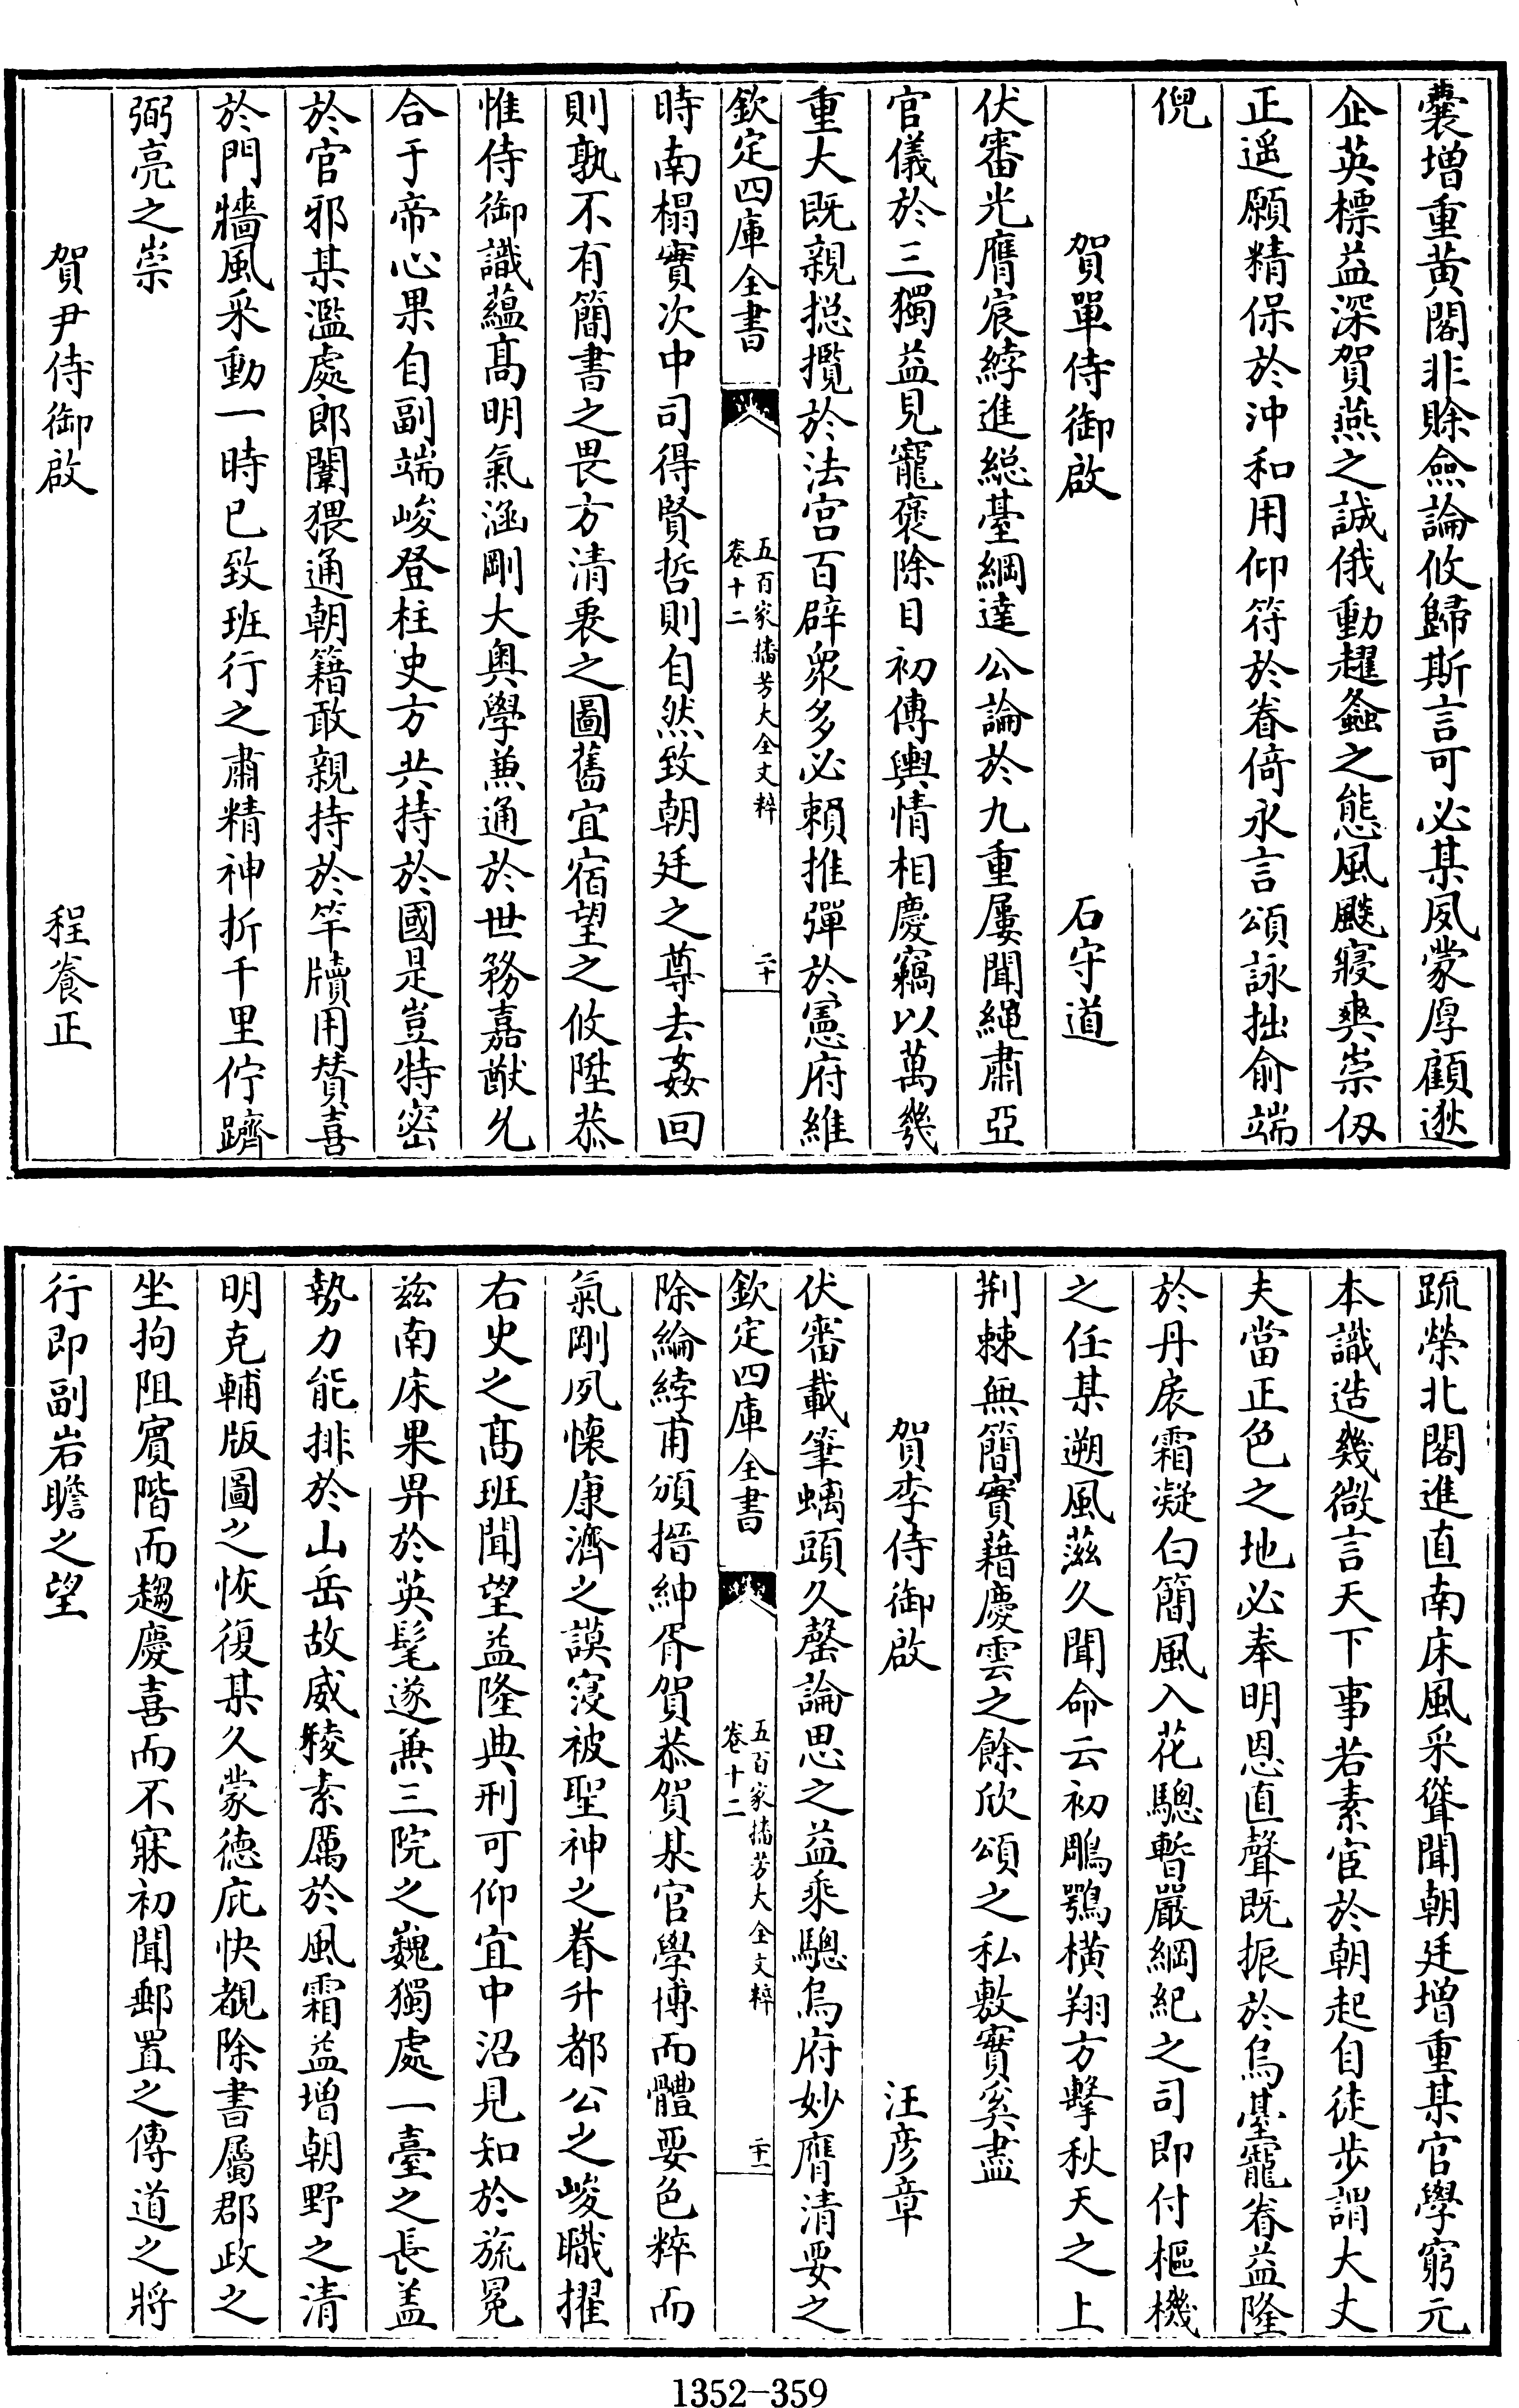 囊增重黄閣非賖僉論攸歸斯言可必某夙蒙厚顧逖
企英標益深賀燕之誠俄動趯螽之態風飈寢爽崇仭
正遥願精保於沖和用仰符於眷倚永言頌詠拙俞端
倪
賀單侍御啟　石守道
伏審光膺宸綍進總臺綱達公論於九重屢聞繩肅亞
官儀於三獨益見寵褒除目初傳輿情相慶竊以萬幾
重大既親摠攬於法宫百辟衆多必賴推彈於憲府維
欽定四庫全書　五百家播芳大全文粹　卷十二　二十
時南榻實次中司得賢哲則自然致朝廷之尊去姦回
則孰不有簡書之畏方清衷之圖舊宜宿望之攸陞恭
惟侍御識藴髙明氣涵剛大奥學兼通於世務嘉猷允
合于帝心果自副端峻登柱史方共持於國是豈特密
於官邪某濫處郎闈猥通朝籍敢親持於竿牘用賛喜
於門牆風采動一時已致班行之肅精神折千里佇躋
弼亮之崇
賀尹侍御啟　程養正
疏榮北閣進直南床風采聳聞朝廷增重某官學窮元
本識造幾微言天下事若素宦於朝起自徒步謂大丈
夫當正色之地必奉明恩直聲既振於烏臺寵眷益隆
於丹扆霜凝白簡風入花驄暫嚴綱紀之司即付樞機
之任某遡風滋久聞命云初鵰鶚橫翔方擊秋天之上
荆棘無簡實藉慶雲之餘欣頌之私敷實奚盡
賀李侍御啟　汪彦章
伏審載筆螭頭久罄論思之益乘驄烏府妙膺清要之
欽定四庫全書　五百家播芳大全文粹　卷十二　二十一
除綸綍甫頒搢紳胥賀恭賀某官學博而體要色粹而
氣剛夙懷康濟之謨寖被聖神之眷升都公之峻職擢
右史之髙班聞望益隆典刑可仰宜中沼見知於旒冕
兹南床果畀於英髦遂兼三院之巍獨處一臺之長盖
勢力能排於山岳故威稜素厲於風霜益增朝野之清
明克輔版圖之恢復某久蒙德庇快覩除書屬郡政之
坐拘阻賓階而趨慶喜而不寐初聞郵置之傳道之將
行即副岩瞻之望
1352-359